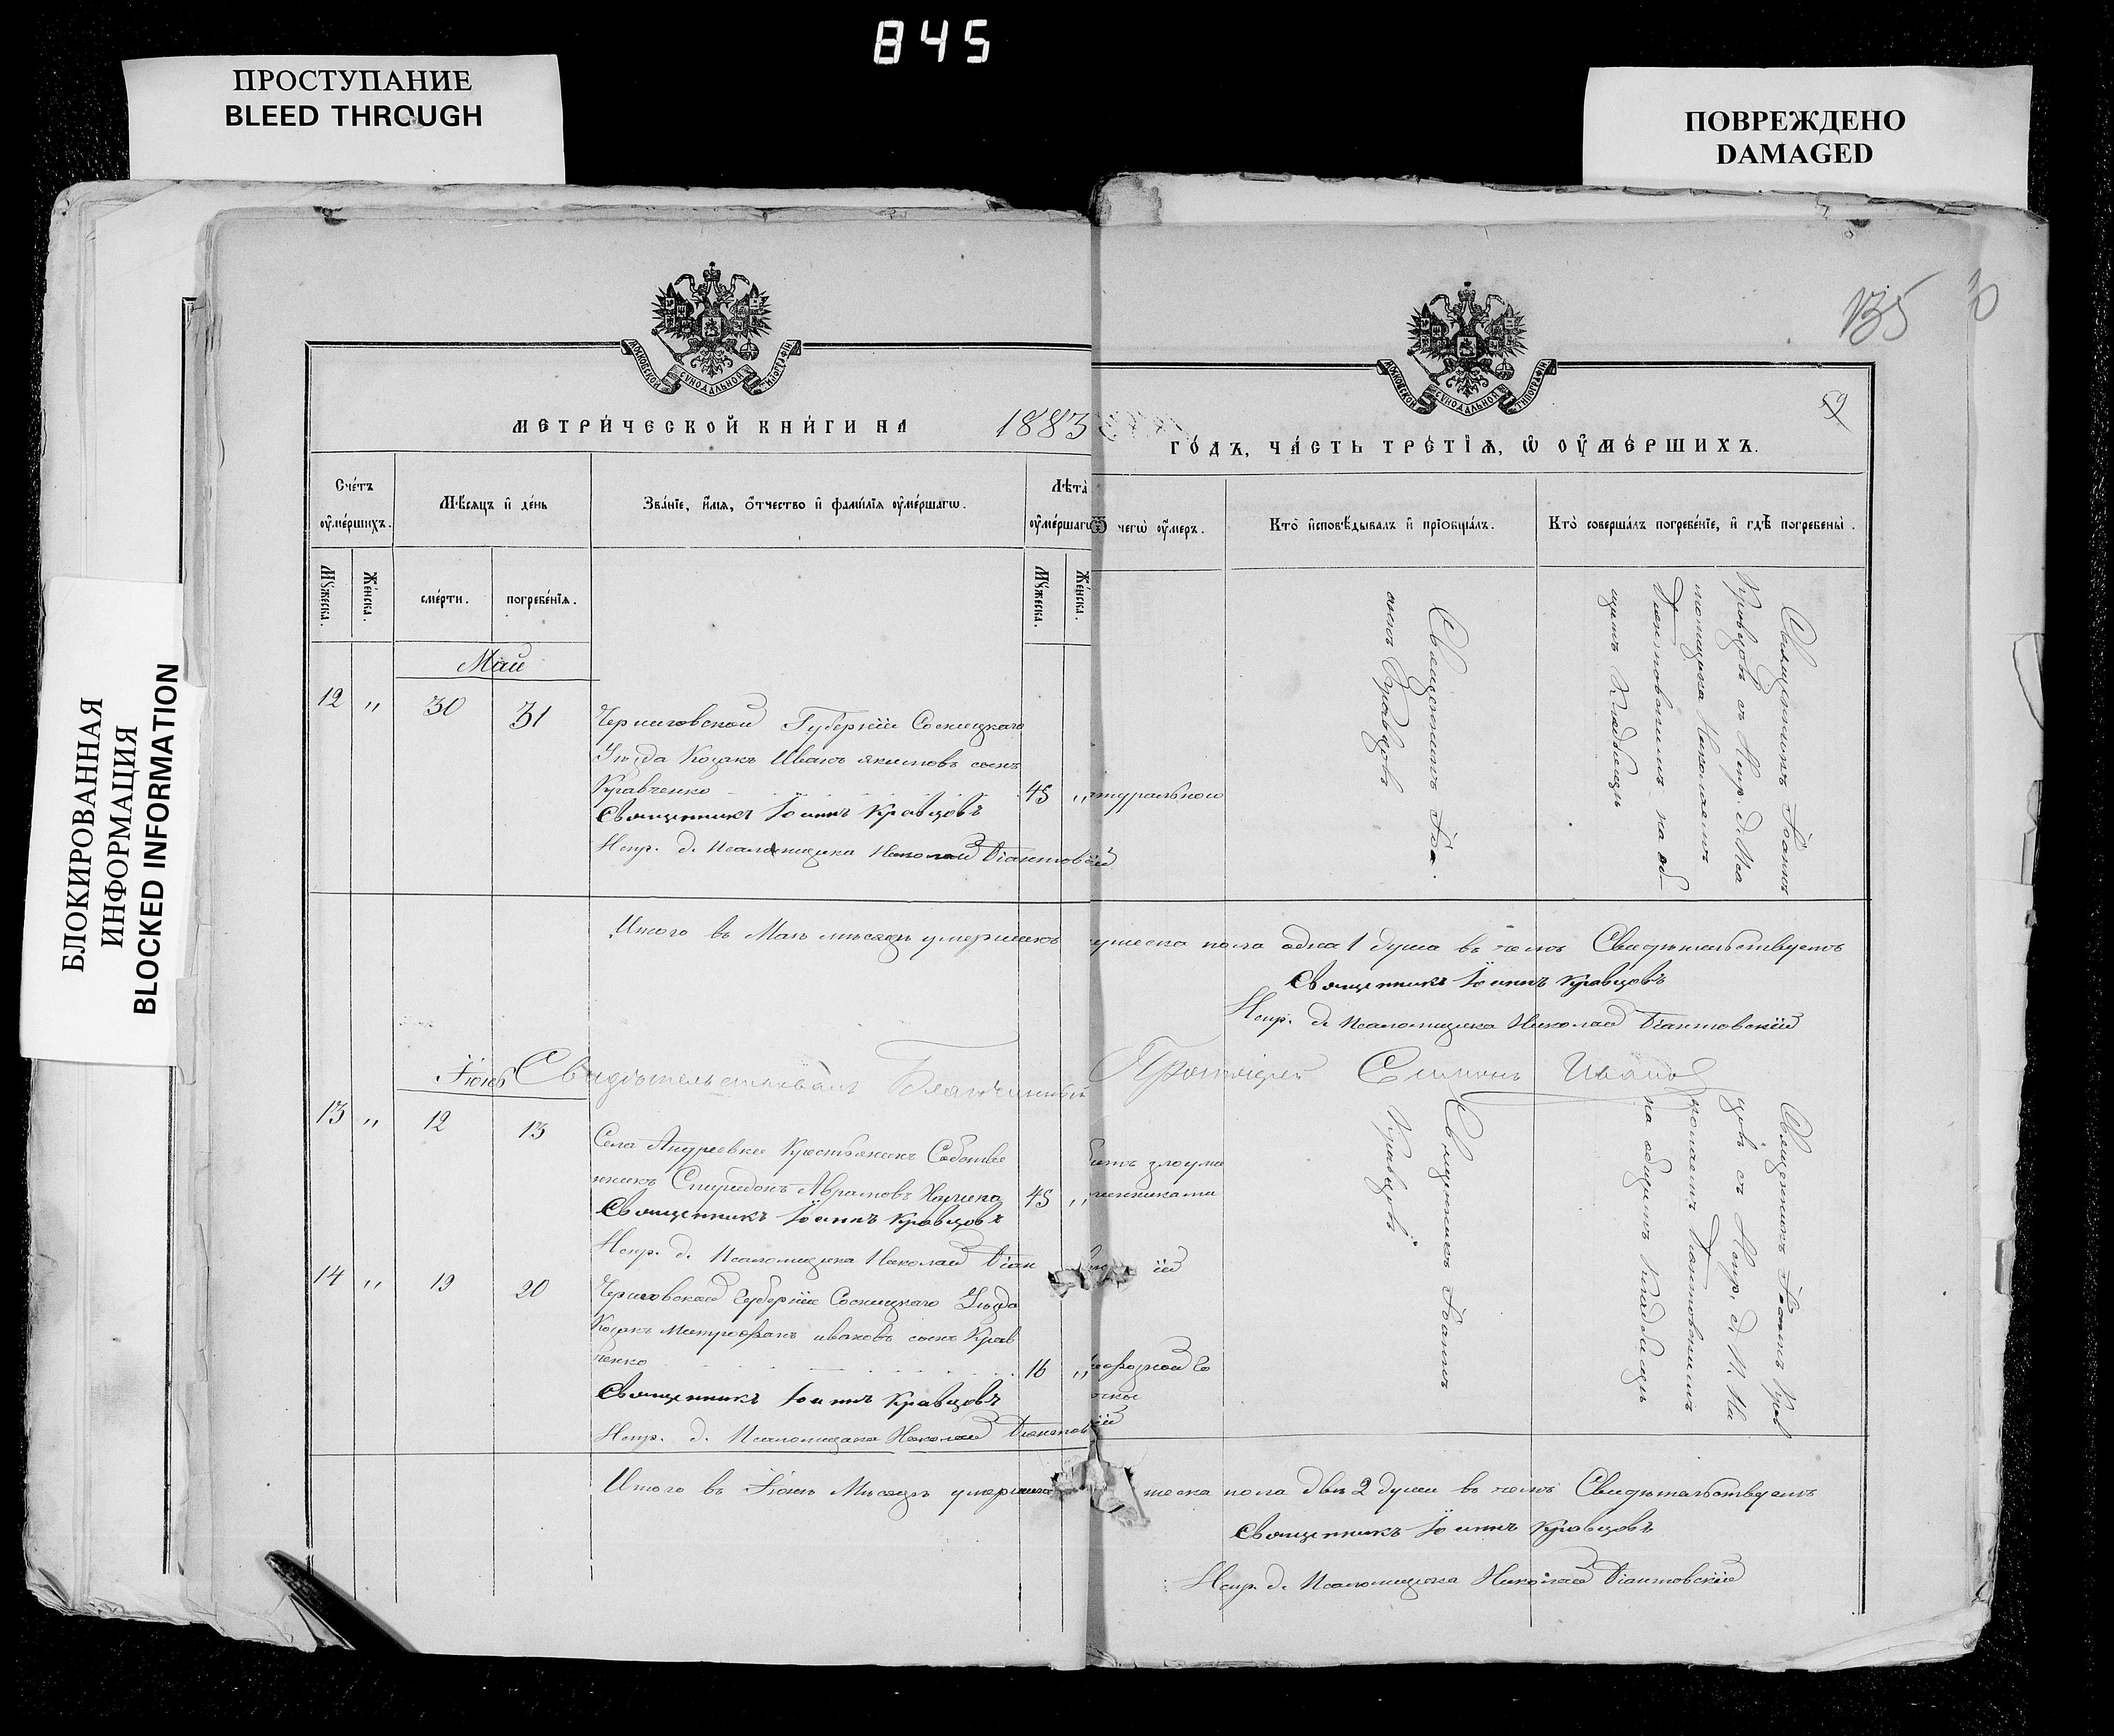 845
ПРОСТУПАНИЕ
BLEED THROUGH
ПОВРЕЖДЕНО
DAMAGED
БЛОКИРОВАННАЯ
ИНФОРМАЦИЯ
BLOCKED INFORMATION
135
59
МОСКОВСКОЙ СѴНОДАЛЬНОЙ ТИПОГРАФІИ
МОСКОВСКОЙ СѴНОДАЛЬНОЙ ТИПОГРАФІИ
МЕТРИ́ЧЕСКОЙ КНИ́ГИ НА 1883
ГО́ДЪ, ЧА́СТЬ ТРЕ́ТІѦ, Ѡ ОУ҆МЕ́РШИХЪ.
Сче́тъ оу҆ме́ршихъ.
Мѣ́сяцъ и҆ де́нь
Зва́нїе, и҆́мя, ѻ҆́тчество и҆ фами́лїя оу҆ме́ршагѡ.
Лѣ́та оу҆ме́ршагѡ
Ѿ чегѡ̀ оу҆́меръ.
Кто̀ и҆сповѣ́дывалъ и҆ прїобща́лъ.
Кто̀ соверша́лъ погребе́нїе, и҆ гдѣ̀ погребены̀.
Мꙋ́жеска.
Же́нска.
сме́рти.
погребе́нїѧ.
Мꙋ́жеска.
Же́нска.
Май
12 " 30 31
Черниговской Губерніи Сосницкаго
Уѣзда Козакъ Иванъ Якимовъ сынъ
Кравченко 45 "
туральной
Священникъ Іоаннъ Кравцовъ
Испр. д. Псаломщика Николай Діантовскій
Священникъ Іоа.
аннъ Кравцовъ
Священникъ Іоаннъ
Кравцовъ съ Испр. д. Пса
ломщика Николаемъ
Діантовскимъ на об-
щемъ Кладбищѣ
Итого въ Маѣ мѣсяцѣ умершихъ
ужеска пола одна 1 душа въ чемъ Свидѣтельствуемъ
Священникъ Іоаннъ Кравцовъ
Испр. д. Псаломщика Николай Діантовскій
Іюнь
Свидѣтельствовалъ Благочинный Протоіерей Симонъ
13 " 12 13
Села Андреевки Крестьянинъ Собстве
нникъ Спиридонъ Аврамовъ 45 "
битъ злоумы
шленниками
Священникъ Іоаннъ Кравцовъ
Испр. д. Псаломщика Николай Діан
Священникъ Іоаннъ
Кравцовъ
Священникъ Іоаннъ Крав
цовъ съ Испр. д. П. Ни
колаемъ Діантовскимъ
на общемъ Кладбищѣ
14 " 19 20
Черниговской Губерніи Сосницкаго Уѣзда
Козакъ Митрофанъ Ивановъ сынъ Крав
ченко 16 "
Священникъ Іоаннъ Кравцовъ
Испр. д. Псаломщика Николай Діантовскій
Итого въ Іюнѣ Мѣсяцѣ умерших
жеска пола двѣ 2 души въ чемъ Свидѣтельствуемъ
Священникъ Іоаннъ Кравцовъ
Испр. д. Псаломщика Николай Діантовскій